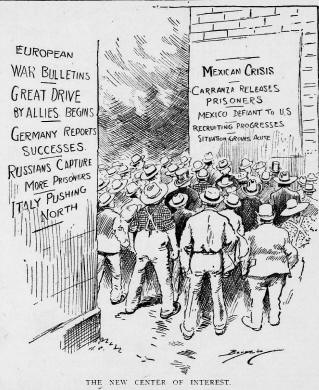 EUROPEAN
WAR BULLETINS
GREAT DRIVE
BY ALLIES BEGINS
GERMANY REPORTS
SUCCESSES.
RUSSIANS CAPTURE
MORE PRISONERS
ITALY PUSHING
NORTH
MEXICAN CRISIS
CARRANZA RELEASES
PRISONERS
MEXICO DEFIANT TO U.S
RECRUITING PROGRESSES
SITUATION GROWS ACUTE
THE NEW CENTER OF INTEREST.